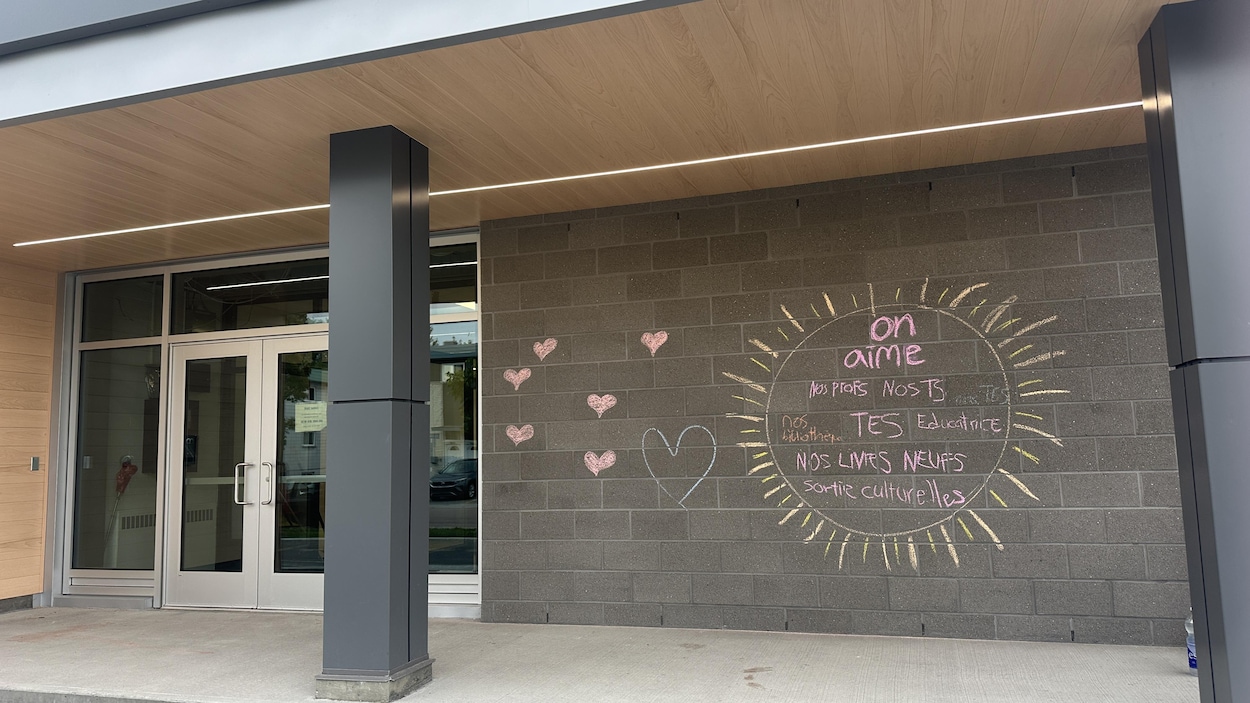 on
aime
Nos profs Nos TS nos TES
nos
bibliothèque TES Educatrice
NOS LIVRES NEUFS
sortie culturelles